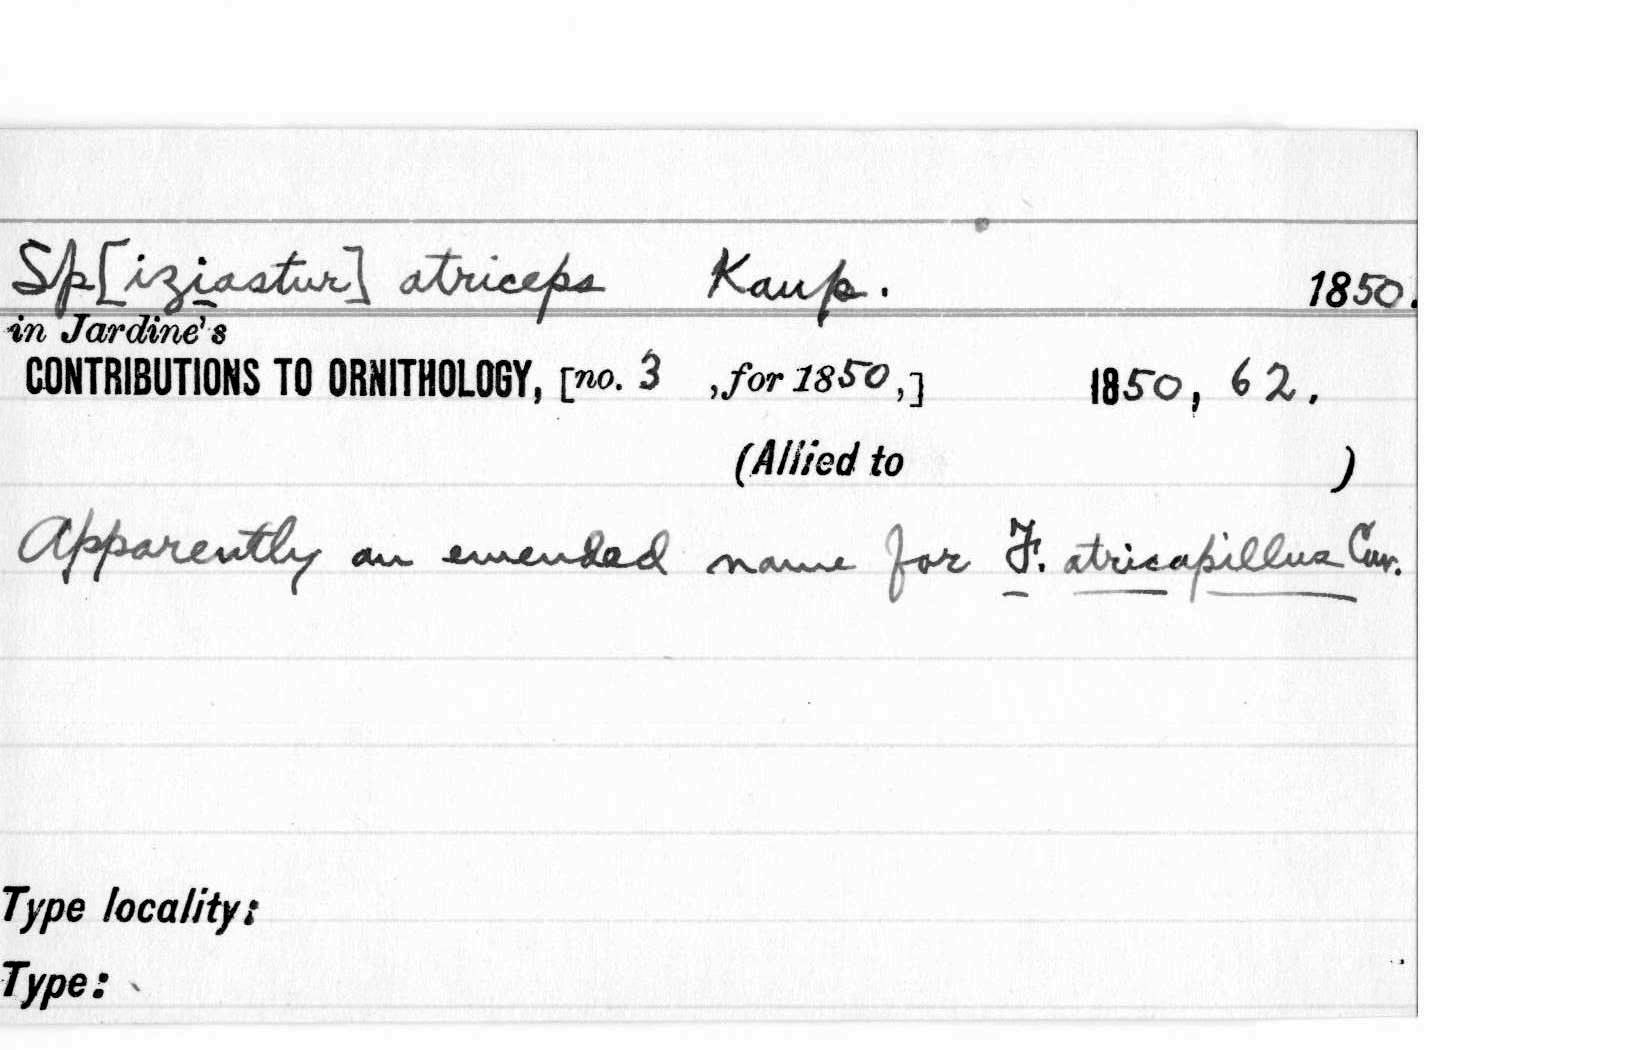 Sp[iziastur] atriceps Kaup. 1850.
in Jardine's
CONTRIBUTIONS TO ORNITHOLOGY, [no. 3 , for 1850,] 1850, 62.
(Allied to )
Apparently an emended name for F. atricapillus Cuv.
Type locality:
Type: